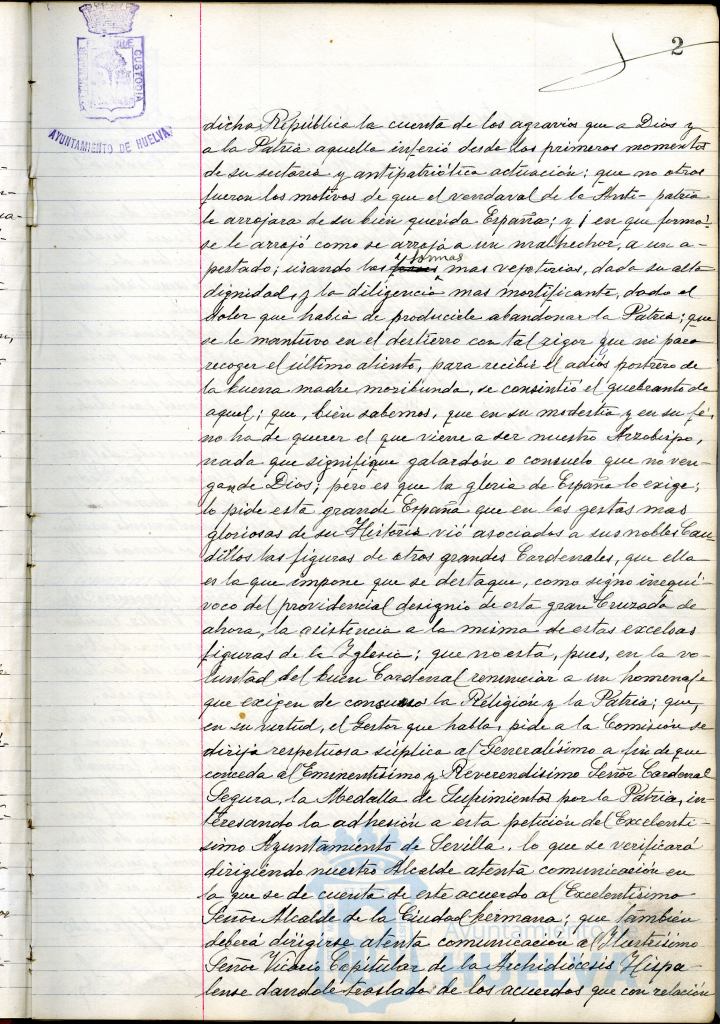 2
CUSTODIA
AYUNTAMIENTO DE HUELVA
dicha República la cuenta de los agravios que a Dios y
a la Patria aquella infirió desde los primeros momentos
de su sectaria y antipatriótica actuación; que no otros
fueron los motivos de que el vendaval de la Anti-patria
le arrojara de su bien querida España; y ¡en que forma!
se le arrojó como se arroja a un malhechor, a un a-
pestado; usando las y formas mas vejatorias, dada su alta
dignidad, y la diligencia mas mortificante, dado el
dolor que había de producirle abandonar la Patria; que
se le mantuvo en el destierro con tal rigor que ni para
recoger el último aliento, para recibir el adiós postrero de
la buena madre moribunda, se consintió el quebranto de
aquel; que, bien sabemos, que en su modestia y en su fé,
no ha de querer el que viene a ser nuestro Arzobispo,
nada que signifique galardón o consuelo que no ven-
gan de Dios; pero es que la gloria de España lo exige;
lo pide esta grande España que en las gestas mas
gloriosas de su Historia vió asociados a sus nobles Cau-
dillos las figuras de otros grandes Cardenales, que ella
es la que impone que se destaque, como signo inequí-
voco del providencial designio de esta gran Cruzada de
ahora, la asistencia a la misma de estas excelsas
figuras de la Iglesia; que no está, pues, en la vo-
luntad del buen Cardenal renunciar a un homenaje
que exigen de consuno la Religión y la Patria; que,
en su virtud, el Gestor que habla, pide a la Comisión se
dirija respetuosa súplica al Generalísimo a fin de que
conceda al Eminentísimo y Reverendísimo Señor Cardenal
Segura, la Medalla de Sufrimientos por la Patria, in-
teresando la adhesión a esta petición del Excelentí-
simo Ayuntamiento de Sevilla, lo que se verificará
dirigiendo nuestro Alcalde atenta comunicación en
la que se de cuenta de este acuerdo al Excelentísimo
Señor Alcalde de la Ciudad hermana; que también
deberá dirigirse atenta comunicación al Ilustrísimo
Señor Vicario Capitular de la Archidiócesis Hispa-
lense dandole traslado de los acuerdos que con relación
Ayuntamiento
HUELVA